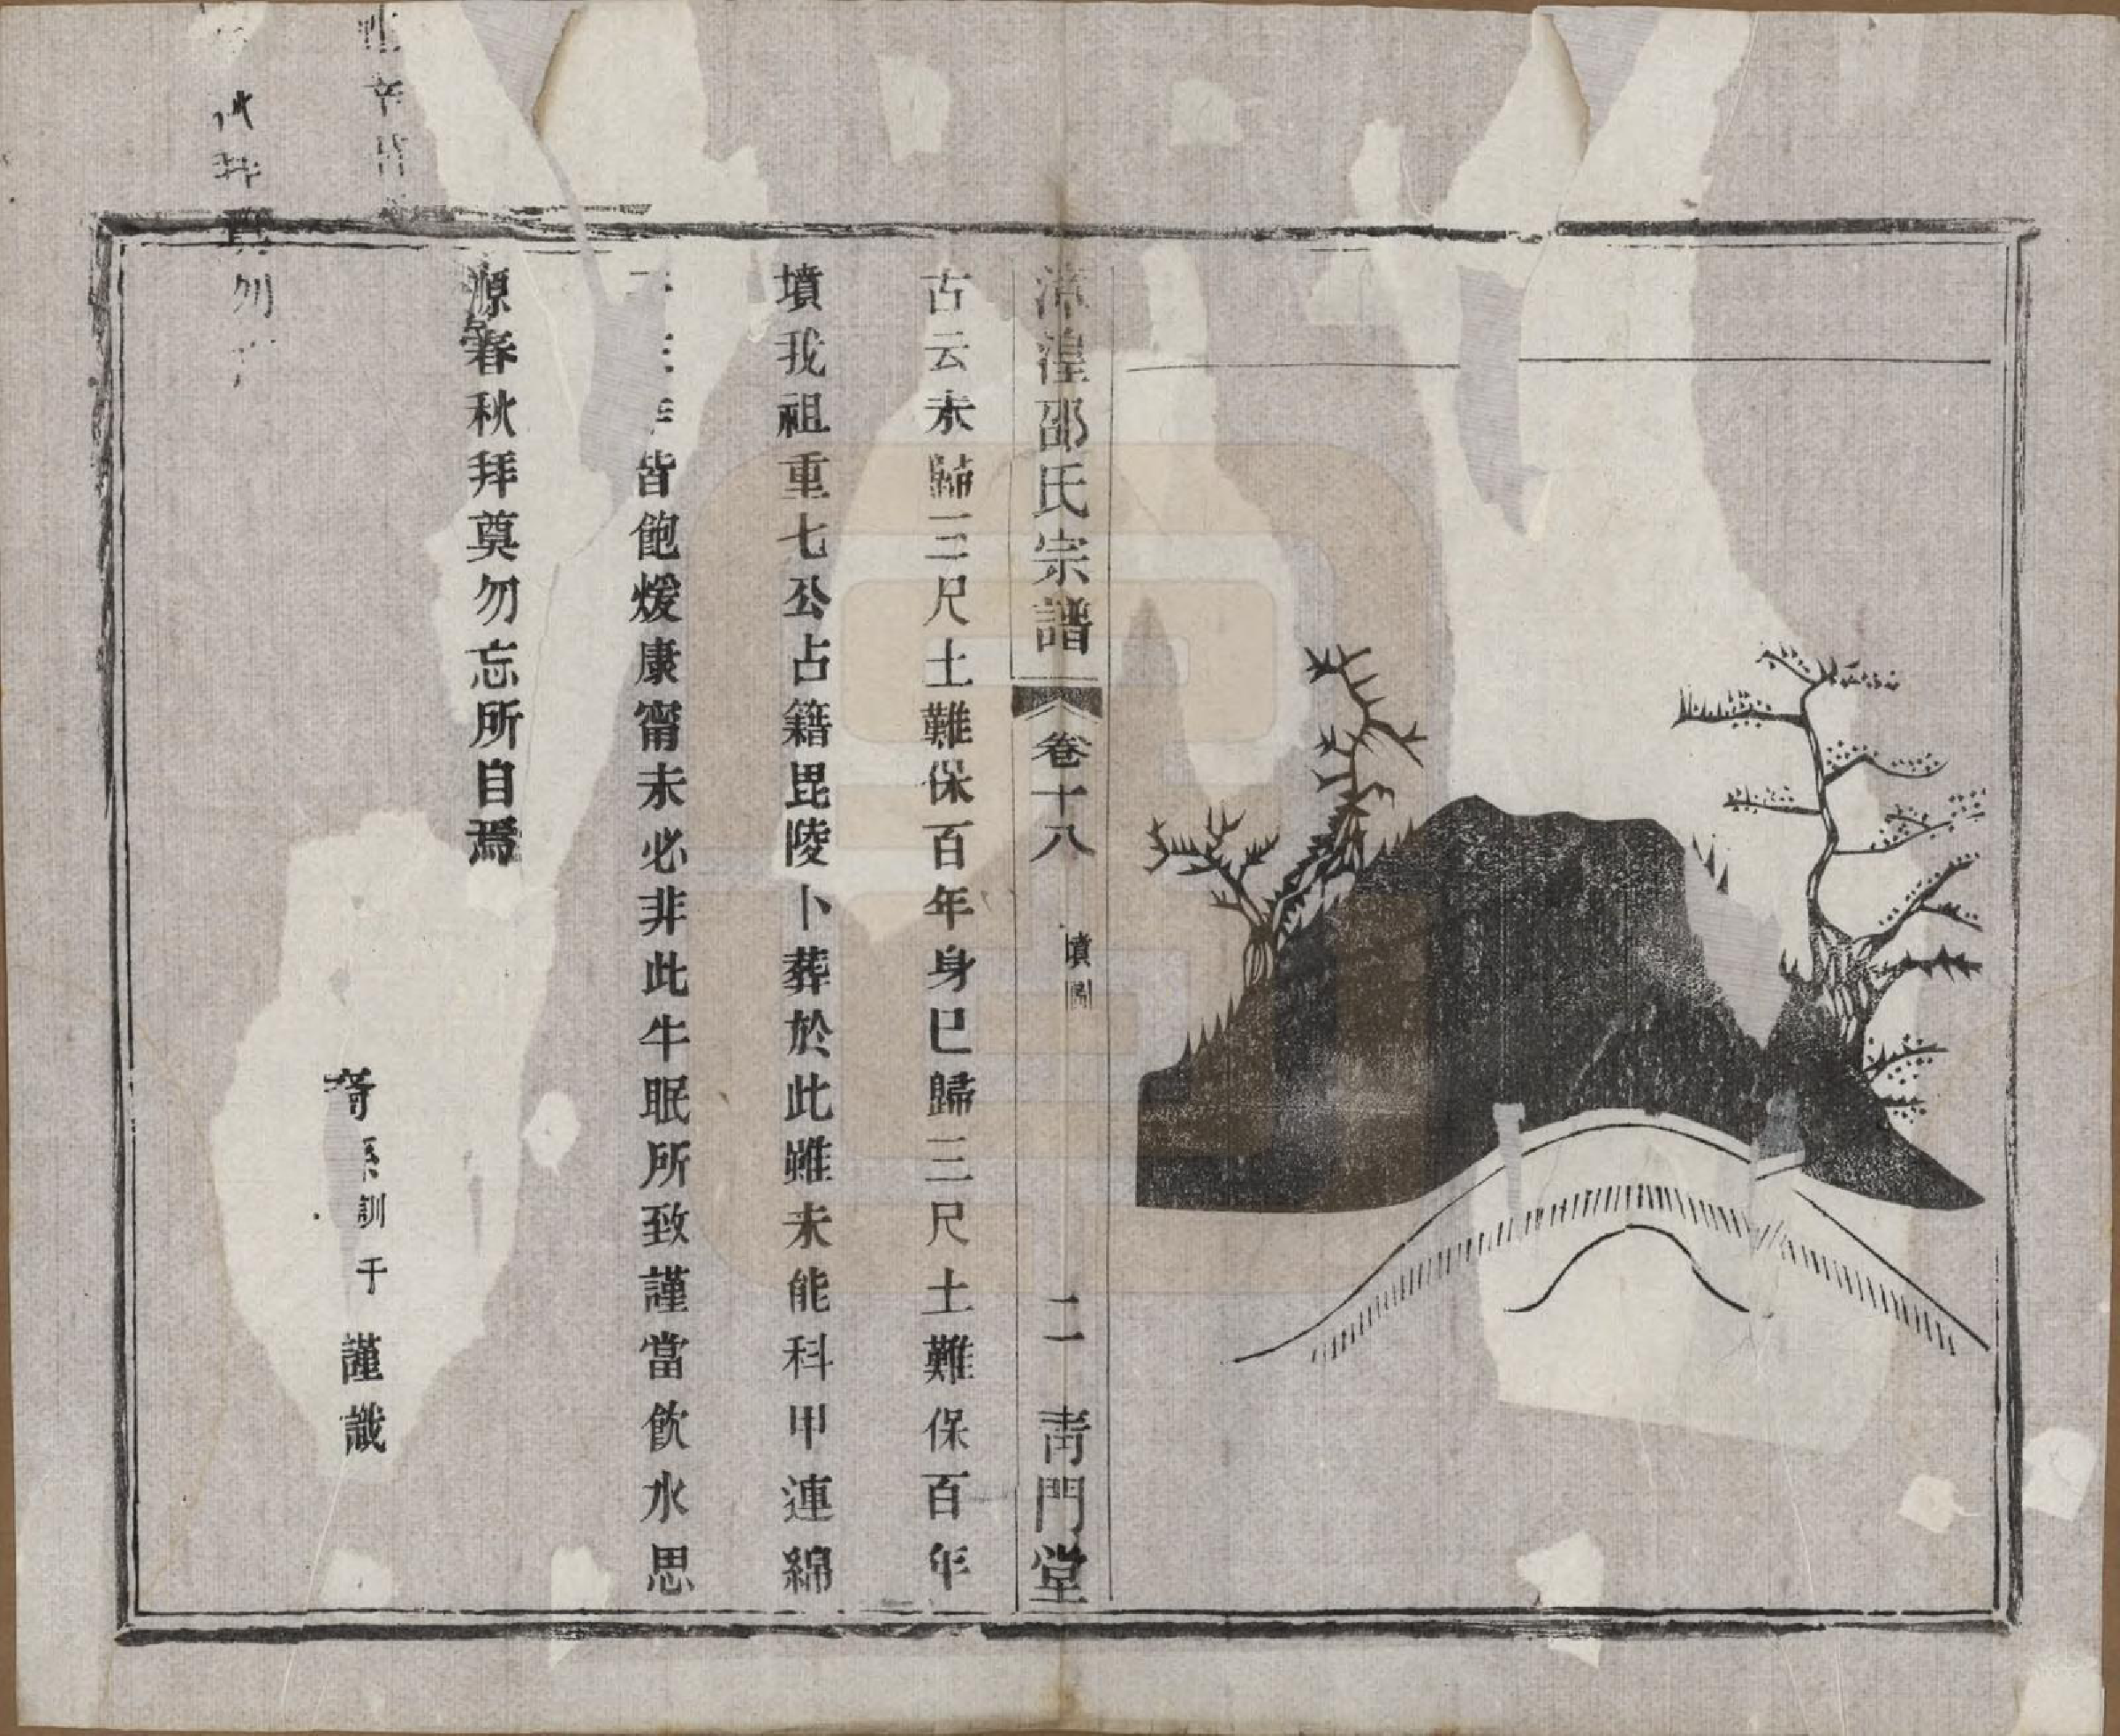 湟邵氏宗譜
卷十八
墳圖
二
青門堂
古云未歸三尺土難保百年身已歸三尺土難保百年
墳我祖重七公占籍毘陵卜葬於此雖未能科甲連綿
皆飽煖康甯未必非此牛眠所致謹當飲水思
源春秋拜奠勿忘所自焉
裔孫訓于謹識